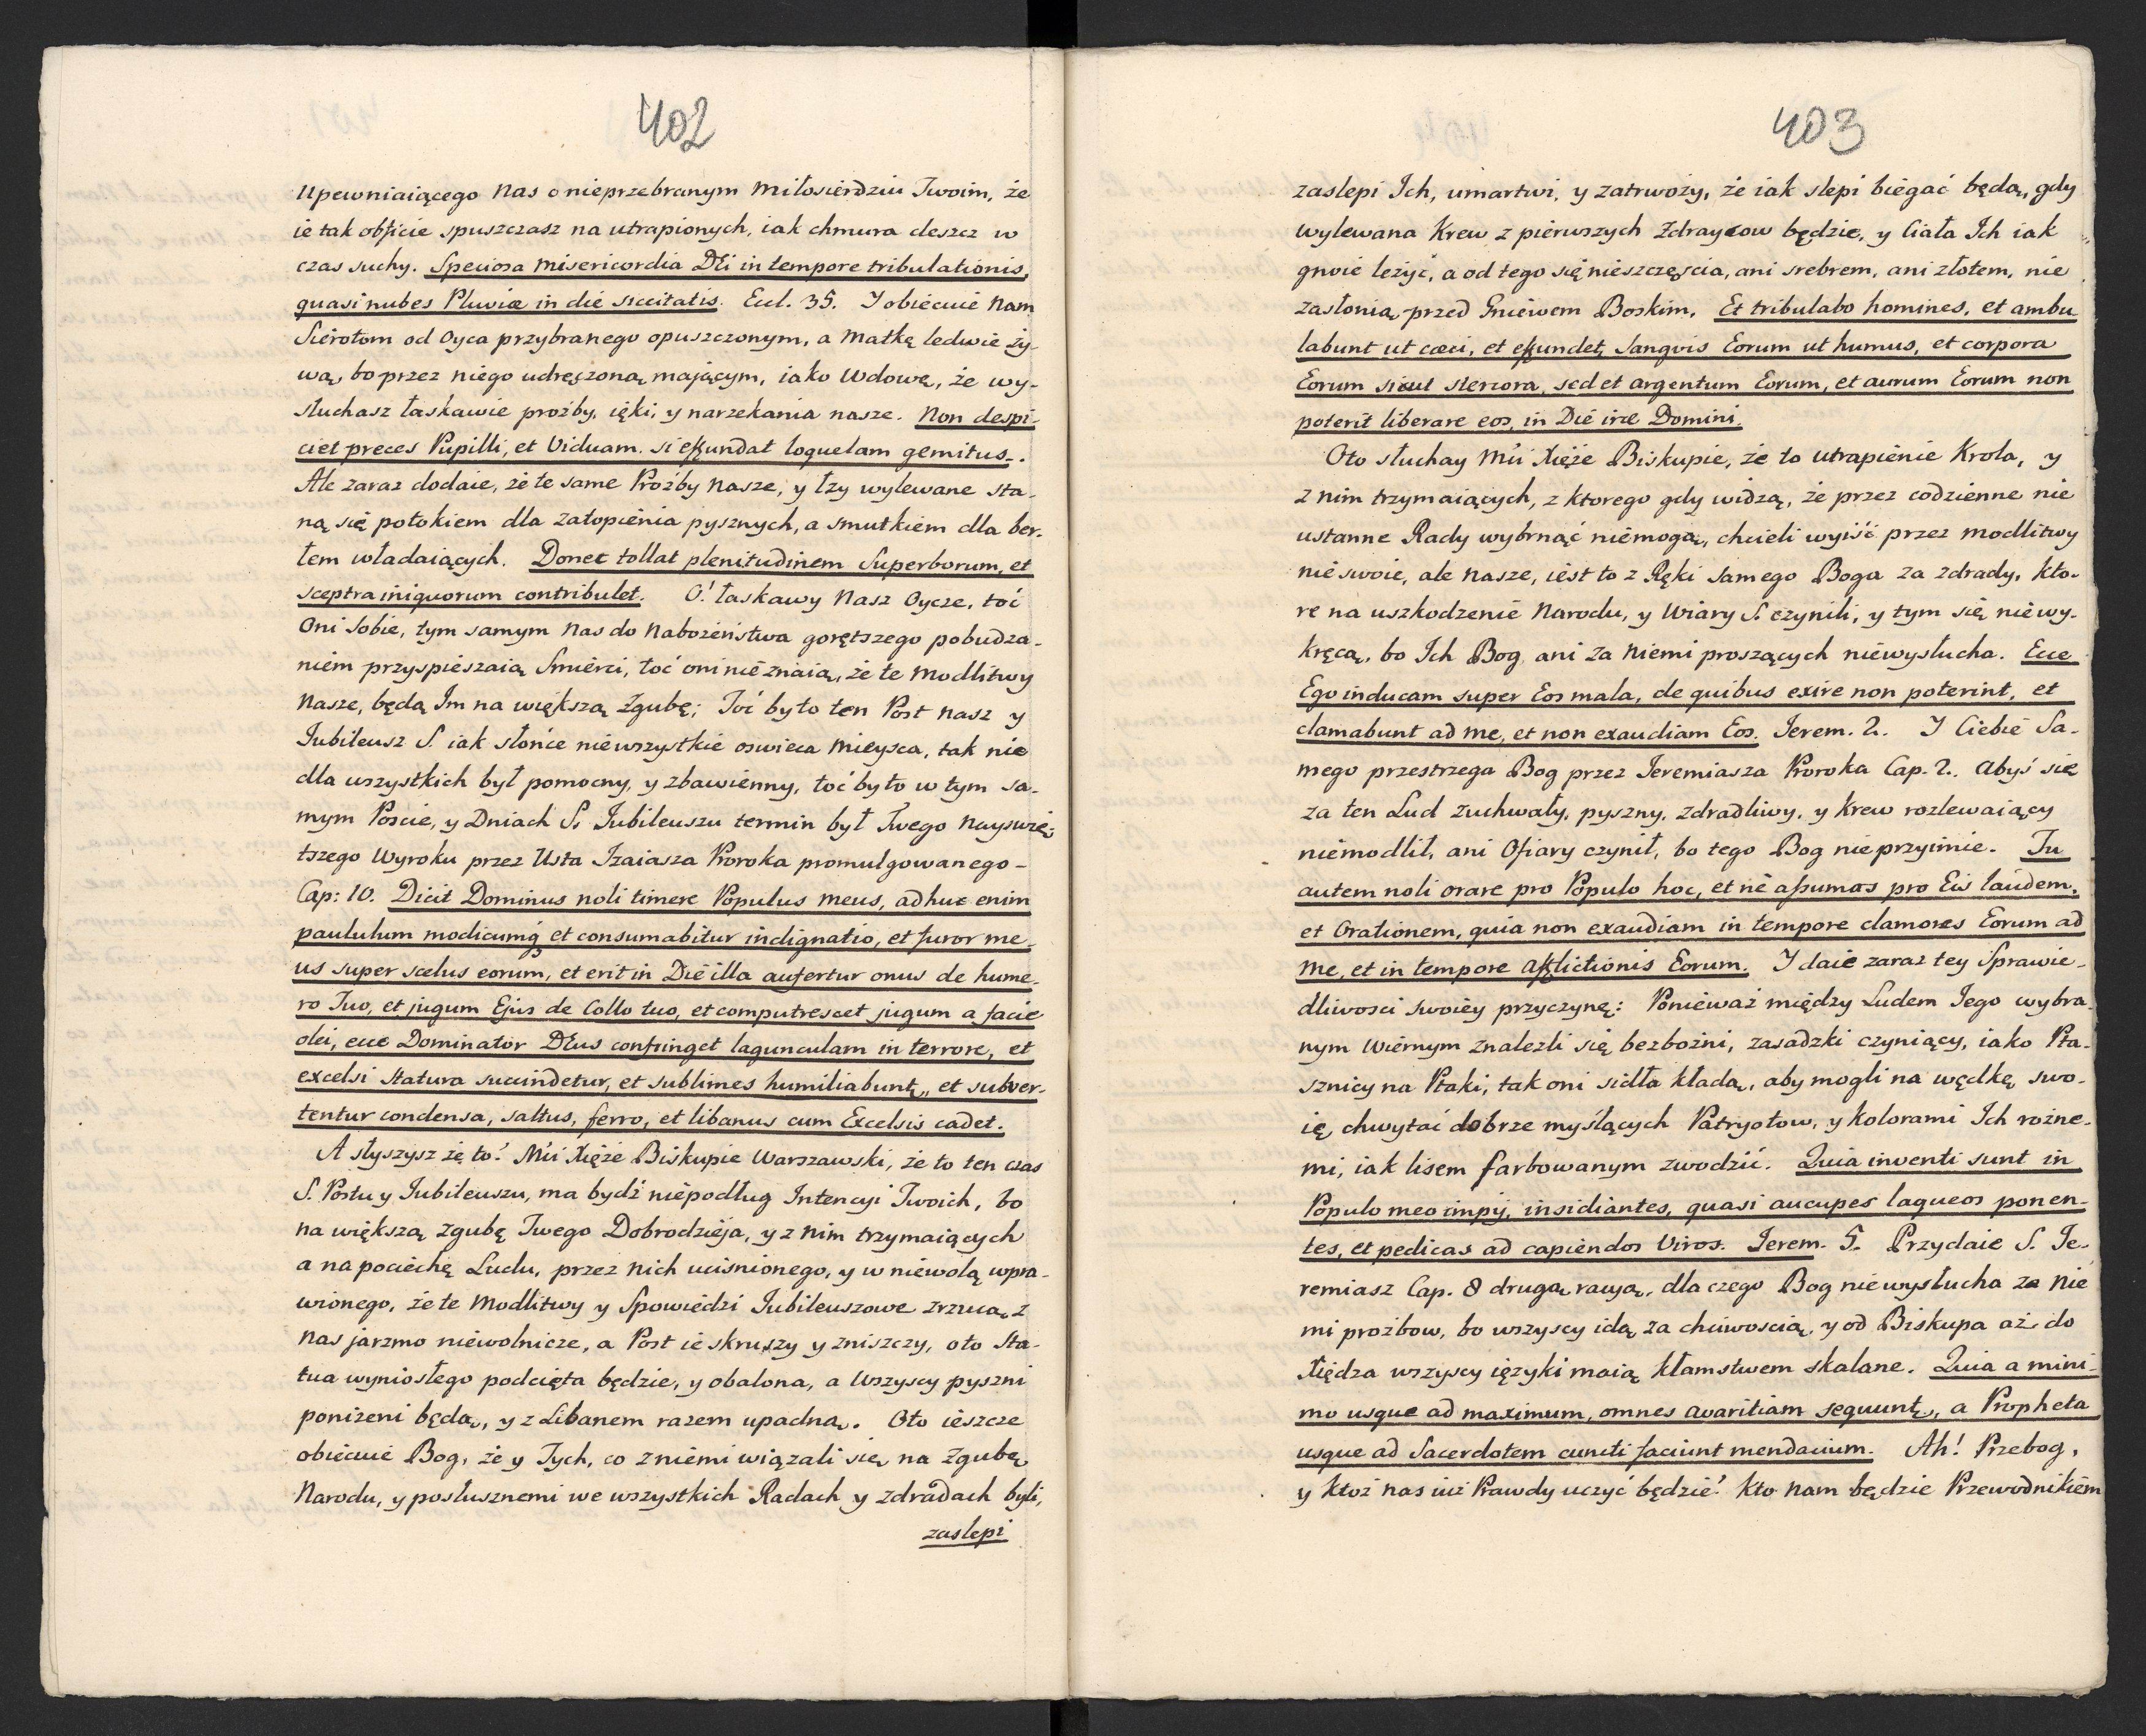 402
upewniaiącego nas o nieprzebranym miłosierdziu Twoim, że
ie tak obficie spuszczasz na utrapionych, iak chmura deszcz w
czas suchy. Speciosa misericordia DEi in tempore tribulationis,
quasi nubes Pluviæ in die siccitatis. Eccl. 35. I obiecuie nam
Sierotom od Oyca przybranego opuszczonym, a matkę ledwie ży-
wą, bo przez niego udręszoną mającym, iako Wdowę, że wy-
słuchasz łaskawie prozby, ięki, y narzekania nasze. Non despi-
ciet preces Pupilli, et Viduam. si effundat loquelam gemitus.
Ale zaraz dodaie, że te same Prozby nasze, y łzy wylewane sta-
ną się potokiem dla zatopienia pysznych, a smutkiem dla ber-
łem władaiących. Donec tollat plenitudinem Superborum, et
sceptra iniquorum contribulet. O! łaskawy Nasz Oycze, toć
Oni sobie, tym samym nas do nabożeństwa gorętszego pobudza-
niem przyspieszaią Smierci, toć oni nie znaią, że te modlitwy
nasze, będą Im na większą zgubę; Toć było ten Post nasz y
Iubileusz S. iak słońce nie wszystkie oswieca mieysca, tak nie
dla wszystkich był pomocny, y zbawienny, toć było w tym sa-
mym Poscie, y Dniach S. Iubileuszu termin był Twego nayswię-
tszego Wyroku przez Usta Izaiasza Proroka promulgowanego -
Cap: 10. Dicit Dominus noli timere Populus meus, adhuc enim
paululum modicumq́ et consumabitur indignatio, et furor me-
us super scelus eorum, et erit in Die illa aufertur onus de hume-
ro Tuo, et jugum Ejus de Collo tuo, et computrescet jugum a facie
olei, ecce Dominator DEus confringet lagunculam in terrore, et
excelsi statura succindetur, et sublimes humiliabuntą, et subver-
tentur condensa, saltus, ferro, et libanus cum Excelsis cadet.
A słyszysz że to! Mći Xięże Biskupie Warszawski, że to ten czas
S. Postu y Iubileuszu, ma bydź niepodług Intencyi Twoich, bo
na większą zgubę Twego Dobrodzieja, y z nim trzymaiących
a na pociechę Ludu, przez nich ucisnionego, y w niewolą wpra-
wionego, że te Modlitwy y Spowiedzi Iubileuszowe zrzucą z
nas jarzmo niewolnicze, a Post ie skruszy y zniszczy, oto sta-
tua wyniosłego podcięta będzie, y obalona, a wszyscy pyszni
poniżeni będą, y z Libanem razem upadną. Oto ieszcze
obiecuie Bog, że y Tych, co z niemi wiązali się na zgubę
Narodu, y posłusznemi we wszystkich Radach y zdradach byli,
zaslepi
403
zaslepi Ich, umartwi, y zatrwoży, że iak slepi biegać będą, gdy
wylewana Krew z pierwszych Zdraycow będzie, y Ciała Ich iak
gnoie leżyć, a od tego się nieszczęscia, ani srebrem, ani złotem, nie
zasłonią przed Gniewem Boskim. Et tribulabo homines, et ambu
labunt ut cæci, et effundet, Sangvis Eorum ut humus, et corpora
Eorum sicut stercora, sed et argentum Eorum, et aurum Eorum non
poterit liberare eos, in Die iræ Domini.
Oto słuchay Mći Xięże Biskupie, że to utrapienie Krola, y
z nim trzymaiących, z ktorego gdy widzą, że przez codzienne nie
ustanne Rady wybrnąć niemogą, chcieli wyiść przez modlitwy
nie swoie, ale nasze, iest to z Ręki samego Boga za zdrady, kto-
re na uszkodzenie Narodu, y Wiary S. czynili, y tym się nie wy-
kręcą, bo Ich Bog ani za niemi proszących niewysłucha. Ecce
Ego inducam super Eos mala, de quibus exire non poterint, et
clamabunt ad me, et non exaudiam Eos. Ierem. 2. I Ciebie Sa-
mego przestrzega Bog przez Ieremiasza Proroka Cap. 2. abyś się
za ten Lud zuchwały, pyszny, zdradliwy, y krew rozlewaiący
niemodlił, ani Ofiary czynił, bo tego Bog nieprzyimie. Tu
autem noli orare pro Populo hoc, et ne assumas pro Eis laudem,
et Orationem, quia non exaudiam in tempore clamores Eorum ad
me, et in tempore afflictionis Eorum. I daie zaraz tey Sprawie-
dliwosci swoiey przyczynę: Ponieważ między Ludem Iego wybra-
nym wiernym znalezli się bezbożni, zasadzki czyniący, iako Pta-
sznicy na Ptaki, tak oni sidła kładą, aby mogli na wędkę swo-
ię, chwytać dobrze myślących Patryotow, y kolorami Ich rożne-
mi, iak lisem farbowanym zwodzić. Quia inventi sunt in
Populo meo impij, insidiantes, quasi aucupes laqueos ponen-
tes, et pedicas ad capiendos Viros. Ierem. 5. Przydaie S. Ie-
remiasz Cap. 8 drugą racyą, dla czego Bog niewysłucha za nie
mi prozbow, bo wszyscy idą za chciwoscią, y od Biskupa aż do
Xiędza wszyscy ięzyki maią kłamstwem skalane. Quia a mini-
mo usque ad maximum, omnes avaritiam sequuntą, a Propheta
usque ad Sacerdotem cuncti faciunt mendacium. Ah! Przebog,
y ktoż nas iuż Prawdy uczyć będzie! kto nam będzie Przewodnikiem